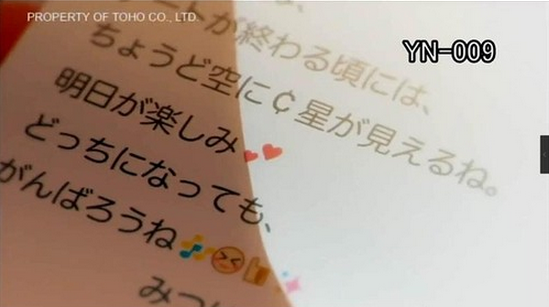 PROPERTY OF TOHO CO., LTD.
YN-009
ートが終わる頃には、
ちょうど空に¢星が見えるね。
明日が楽しみ💕
どっちになっても、
がんばろうね🎶😆🍻✨
みつ